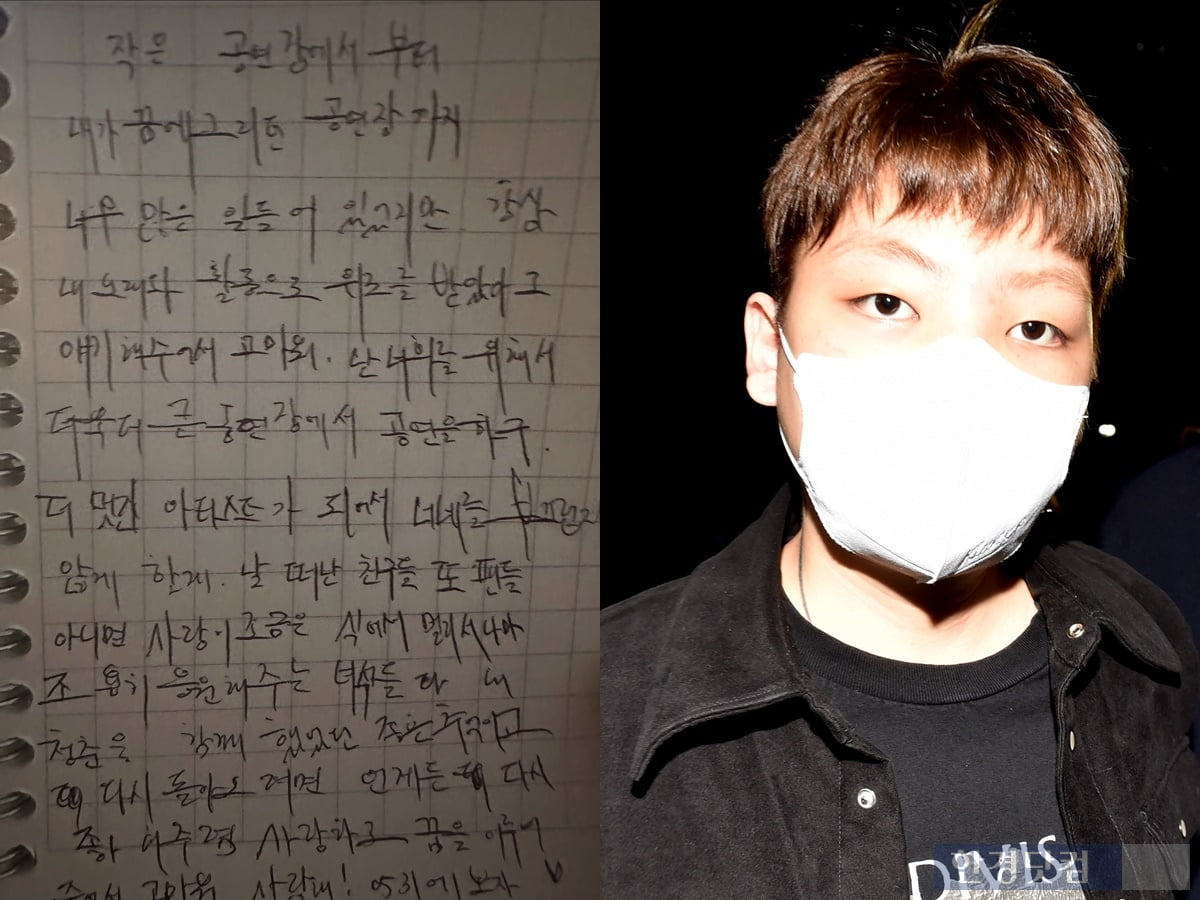 작은 공연장에서 부터
내가 꿈에 그리던 공연장 까지
너무 많은 일들이 있었지만 항상
내 노래와 활동으로 위로를 받았다고
얘기해주어서 고마워. 난 너희를 위해서
더욱 더 큰 공연장에서 공연을 하구.
더 멋진 아티스트가 되어서 너네를 부끄럽지
않게 할게. 날 떠난 친구들 또 팬들
아니면 사랑이 조금은 식어서 멀리서나마
조용히 응원해주는 녀석들 다 내
청춘을 함께 했었던 좋은 추억이고
다시 돌아오려면 언제든 다시
좋아해주고 사랑하고 꿈을 이루어
주어서 고마워 사랑해! 0531에 보자
DIVIS
한경닷컴